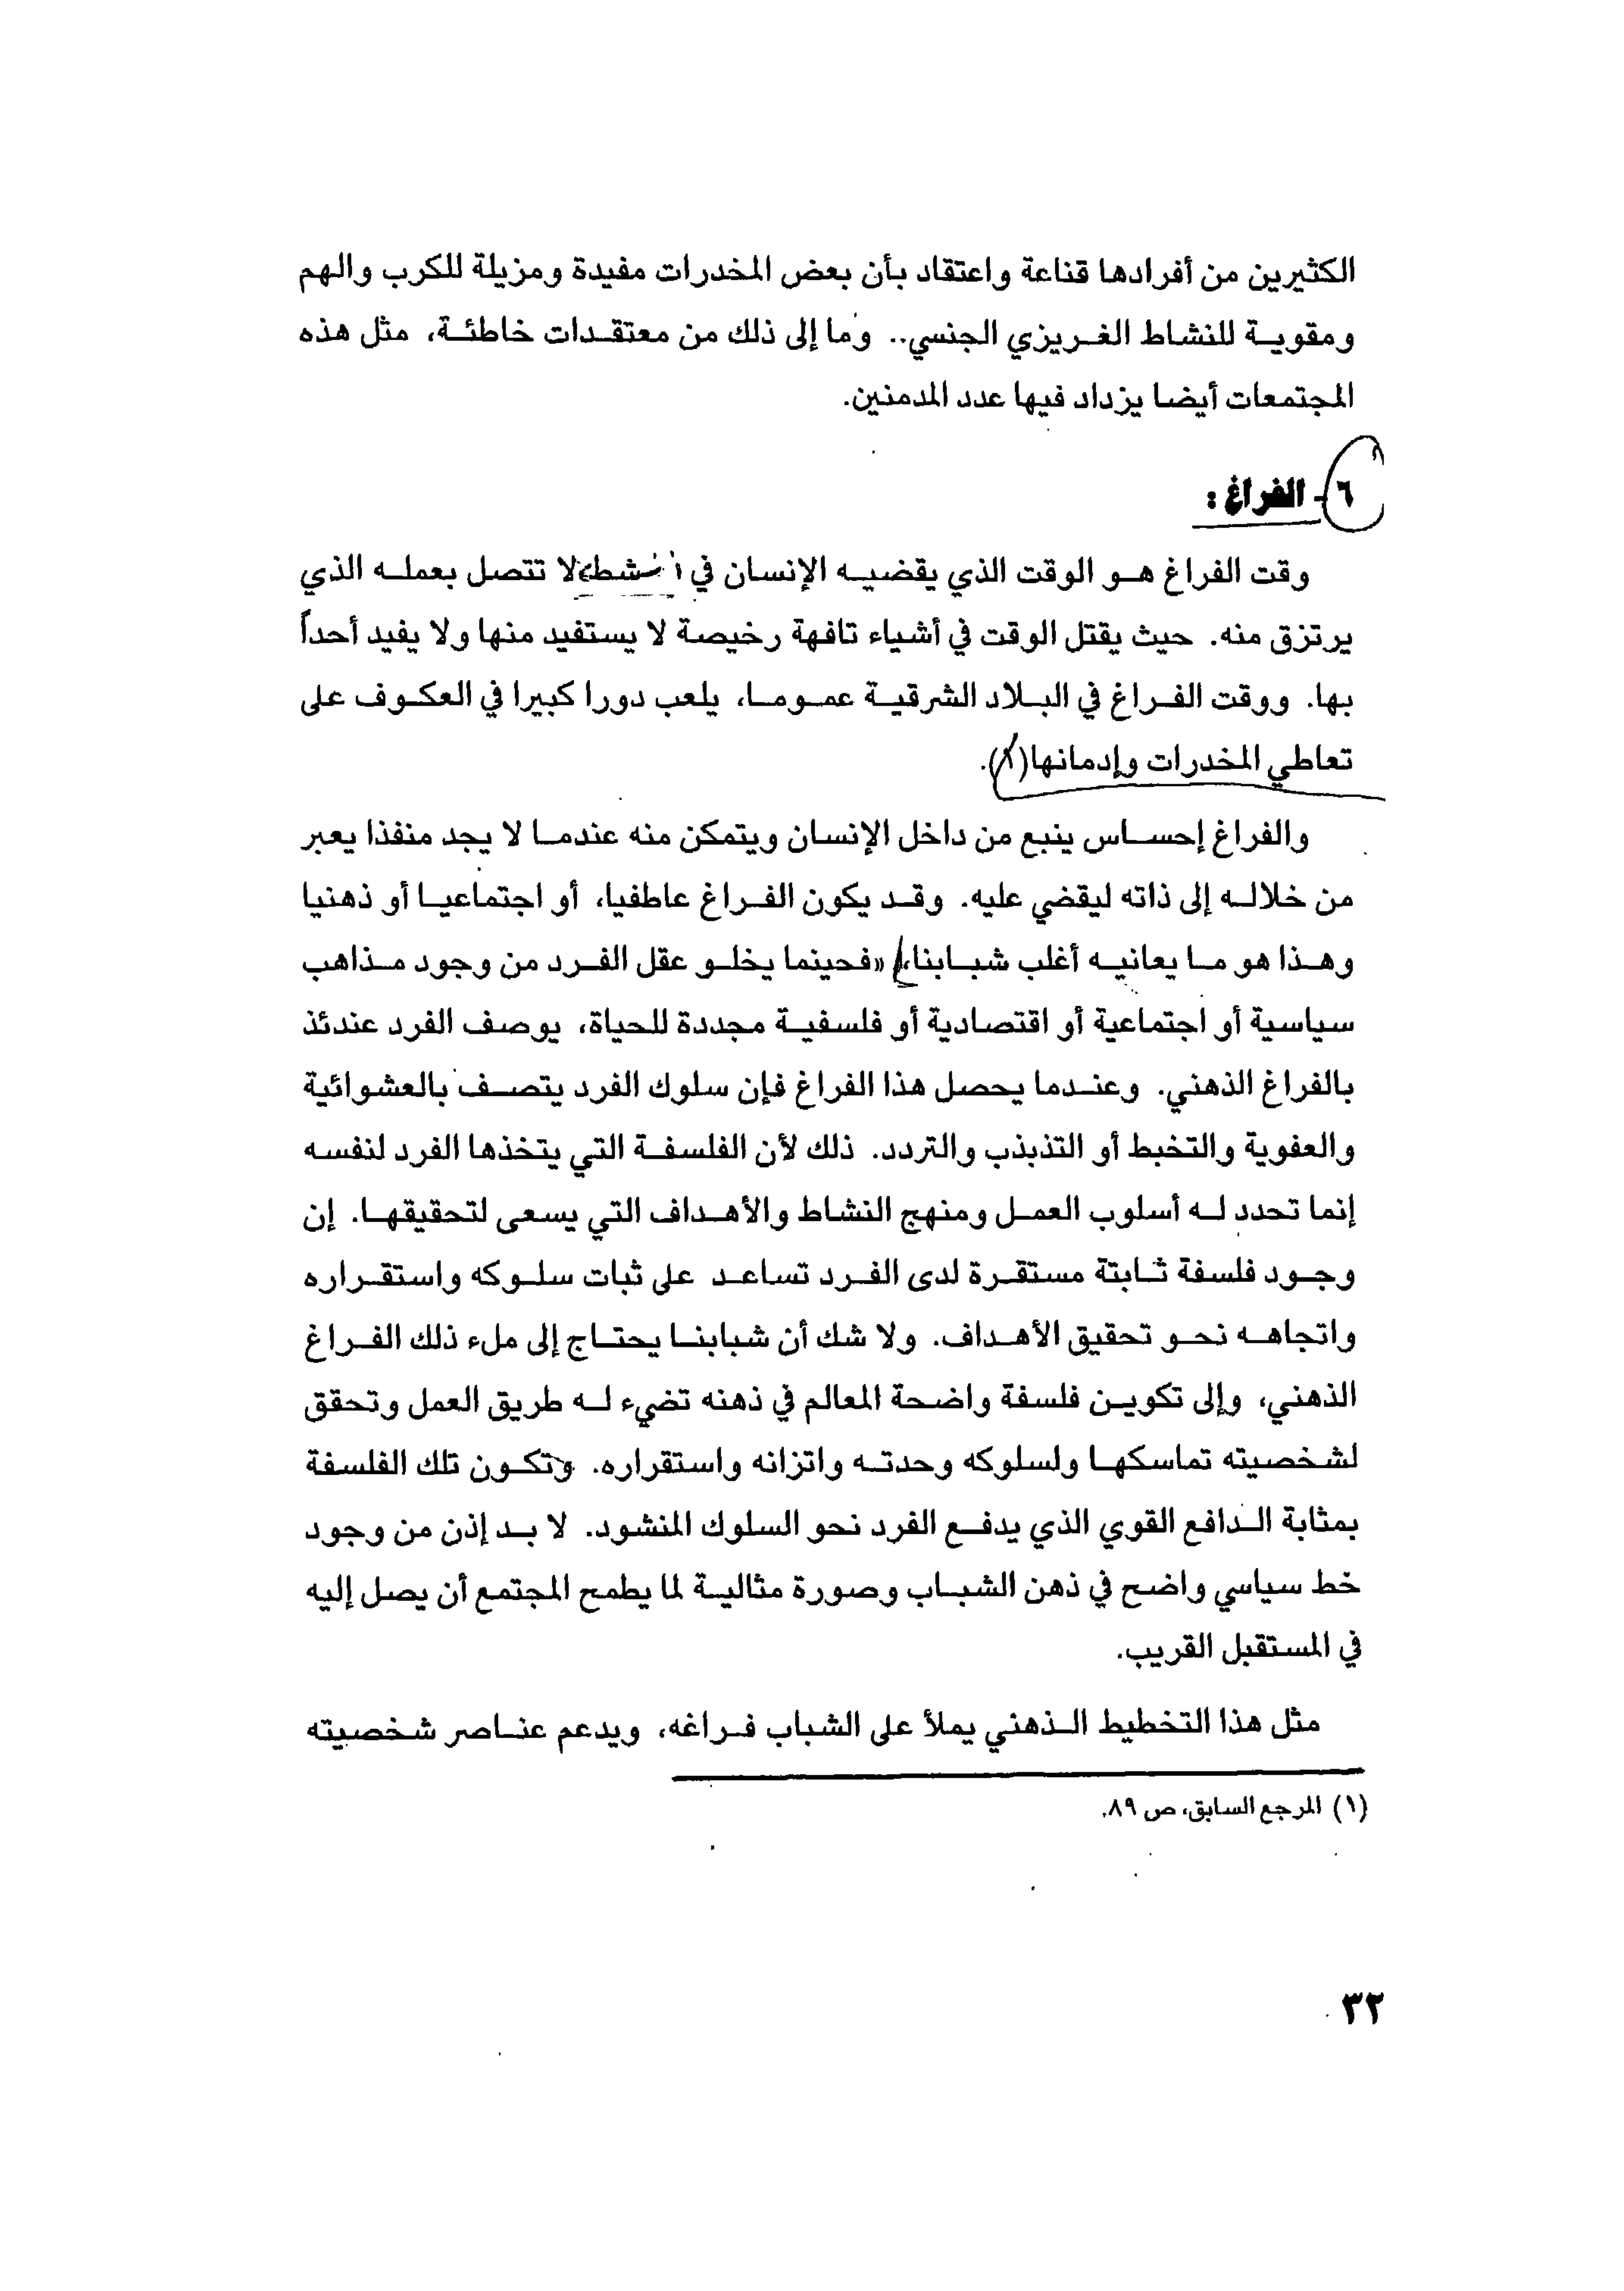 الكثيرين من أفرادها قناعة واعتقاد بأن بعض المخدرات مفيدة ومزيلة للكرب والهم
ومقوية للنشاط الغريزي الجنسي.. وما إلى ذلك من معتقدات خاطئة، مثل هذه
المجتمعات أيضا يزداد فيها عدد المدمنين.
٦- الفراغ:
وقت الفراغ هو الوقت الذي يقضيه الإنسان في لا تتصل بعمله الذي
يرتزق منه. حيث يقتل الوقت في أشياء تافهة رخيصة لا يستفيد منها ولا يفيد أحداً
بها. ووقت الفراغ في البلاد الشرقية عموما، يلعب دورا كبيرا في العكوف على
تعاطي المخدرات وإدمانها(١).
والفراغ إحساس ينبع من داخل الإنسان ويتمكن منه عندما لا يجد منفذا يعبر
من خلاله إلى ذاته ليقضي عليه. وقد يكون الفراغ عاطفيا، أو اجتماعيا أو ذهنيا
وهذا هو ما يعانيه أغلب شبابنا، «فحينما يخلو عقل الفرد من وجود مذاهب
سياسية أو اجتماعية أو اقتصادية أو فلسفية مجددة للحياة، يوصف الفرد عندئذ
بالفراغ الذهني. وعندما يحصل هذا الفراغ فإن سلوك الفرد يتصف بالعشوائية
والعفوية والتخبط أو التذبذب والتردد. ذلك لأن الفلسفة التي يتخذها الفرد لنفسه
إنما تحدد له أسلوب العمل ومنهج النشاط والأهداف التي يسعى لتحقيقها. إن
وجود فلسفة ثابتة مستقرة لدى الفرد تساعد على ثبات سلوكه واستقراره
واتجاهه نحو تحقيق الأهداف. ولا شك أن شبابنا يحتاج إلى ملء ذلك الفراغ
الذهني، وإلى تكوين فلسفة واضحة المعالم في ذهنه تضيء له طريق العمل وتحقق
لشخصيته تماسكها ولسلوكه وحدته واتزانه واستقراره. وتكون تلك الفلسفة
بمثابة الدافع القوي الذي يدفع الفرد نحو السلوك المنشود. لا بد إذن من وجود
خط سياسي واضح في ذهن الشباب وصورة مثالية لما يطمح المجتمع أن يصل إليه
في المستقبل القريب.
مثل هذا التخطيط الذهني يملأ على الشباب فراغه، ويدعم عناصر شخصيته
(١) المرجع السابق، ص ٨٩.
٣٢